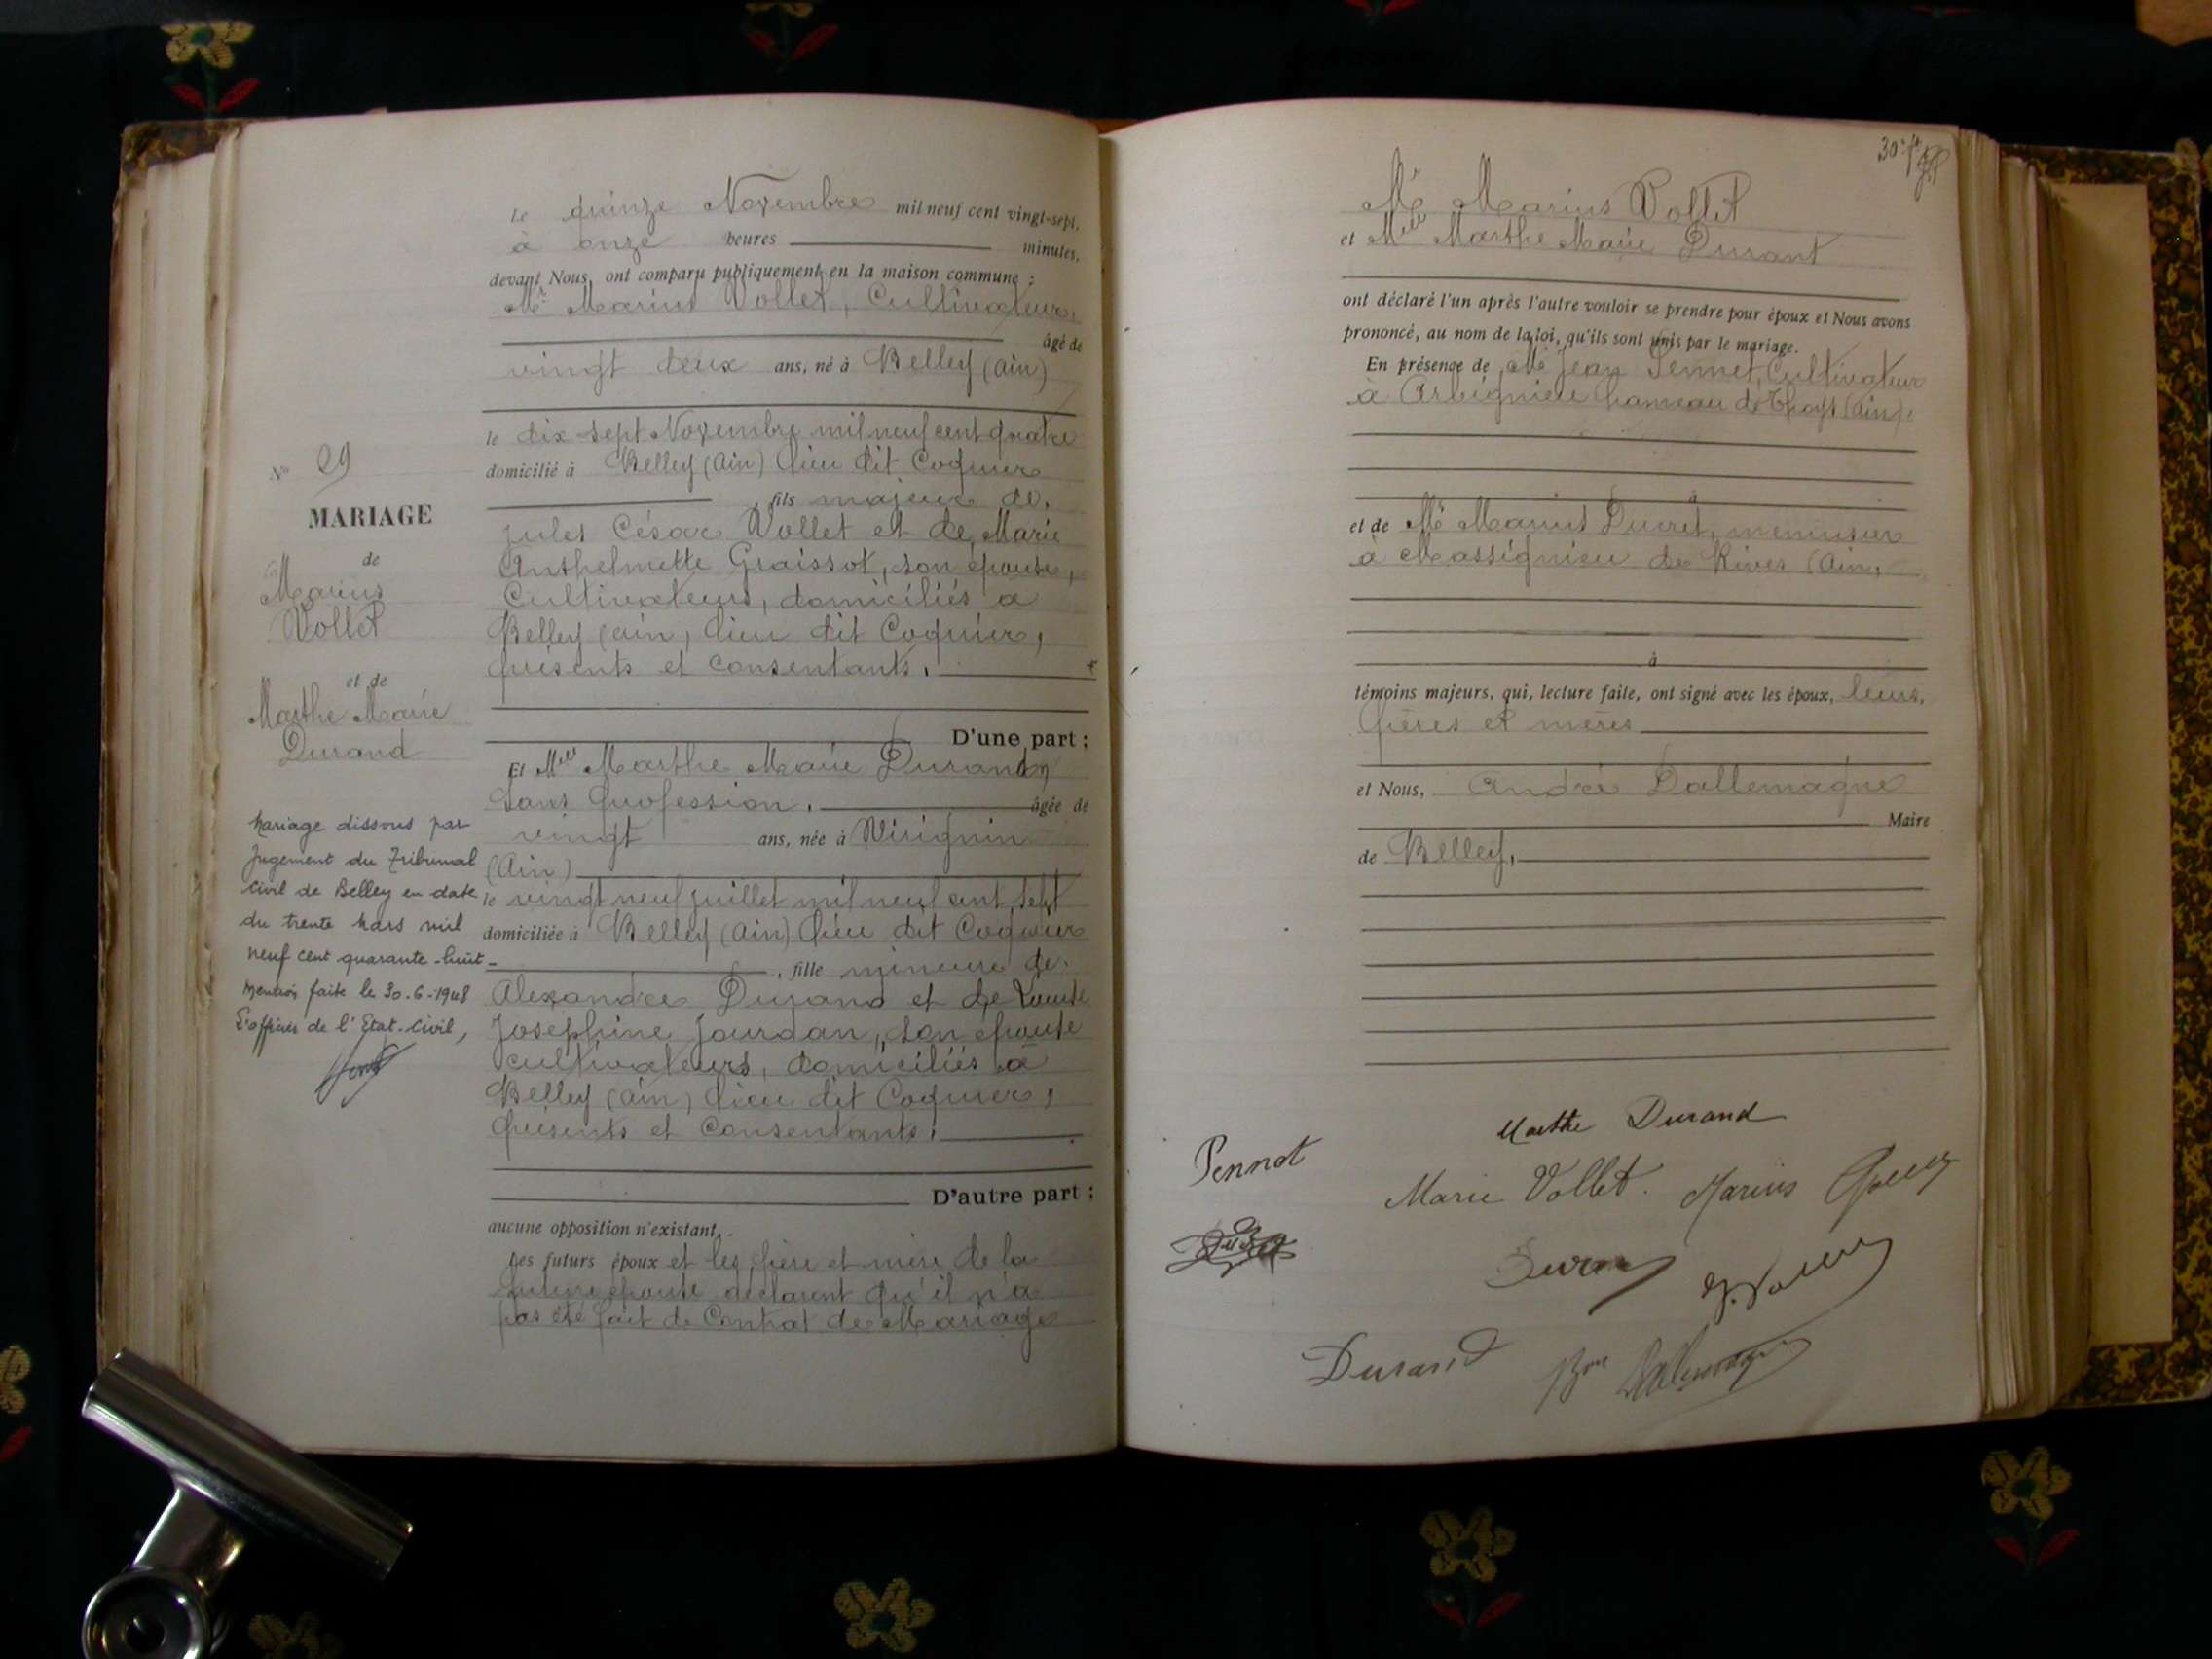 Le quinze Novembre mil neuf cent vingt-sept,
à onze heures minutes,
devant Nous, ont comparu publiquement en la maison commune :
Mr Marius Vollet, Cultivateur,
âgé de
vingt deux ans, né à Belley (Ain)
le dix sept Novembre mil neuf cent quatre
domicilié à Belley (Ain) lieu dit Coquier
, fils majeur de.
Jules César Vollet et de Marie
Anthelmette Graissot, son épouse,
Cultivateurs, domiciliés à
Belley (Ain, lieu dit Coquier,
présents et consentants,
D'une part ;
Et Mlle Marthe Marie Durand,
Sans profession, âgée de
vingt ans, née à Virignin
(Ain)
le vingt neuf juillet mil neuf cent sept
domiciliée à Belley (Ain) lieu dit Coquier
, fille mineure de.
Alexandre Durand et de
Josephine Jourdan, son épouse
cultivateurs, domiciliés à
Belley (Ain, lieu dit Coquier,
présents et consentants,
D'autre part ;
aucune opposition n'existant.
Les futurs époux et les père et mère de la
future épouse déclarent qu'il n'a
pas été fait de Contrat de Mariage
No 29
MARIAGE
de
Marius
Vollet
et de
Marthe Marie
Durand
Mariage dissous par
Jugement du Tribunal
Civil de Belley en date
du trente Mars mil
neuf cent quarante-huit-
Mention faite le 30-6-1948
L'officier de l'Etat-Civil,
30e ft
Mr Marius Vollet
et Mlle Marthe Marie Durant
ont déclaré l'un après l'autre vouloir se prendre pour époux et Nous avons
prononcé, au nom de la loi, qu'ils sont unis par le mariage.
En présence de Mr Jean Pennet, Cultivateur
à Arbignieu hameau de Thoys (Ain),
à
et de Mr Marius Ducret, menuisier
à Massignieu de Rives (Ain,
à
témoins majeurs, qui, lecture faite, ont signé avec les époux, leurs,
pères et mères
et Nous, André Dallemagne
Maire
de Belley,
Marthe Durand
Pennot
Marie Vollet. Marius
Durand Bon Dallemagne